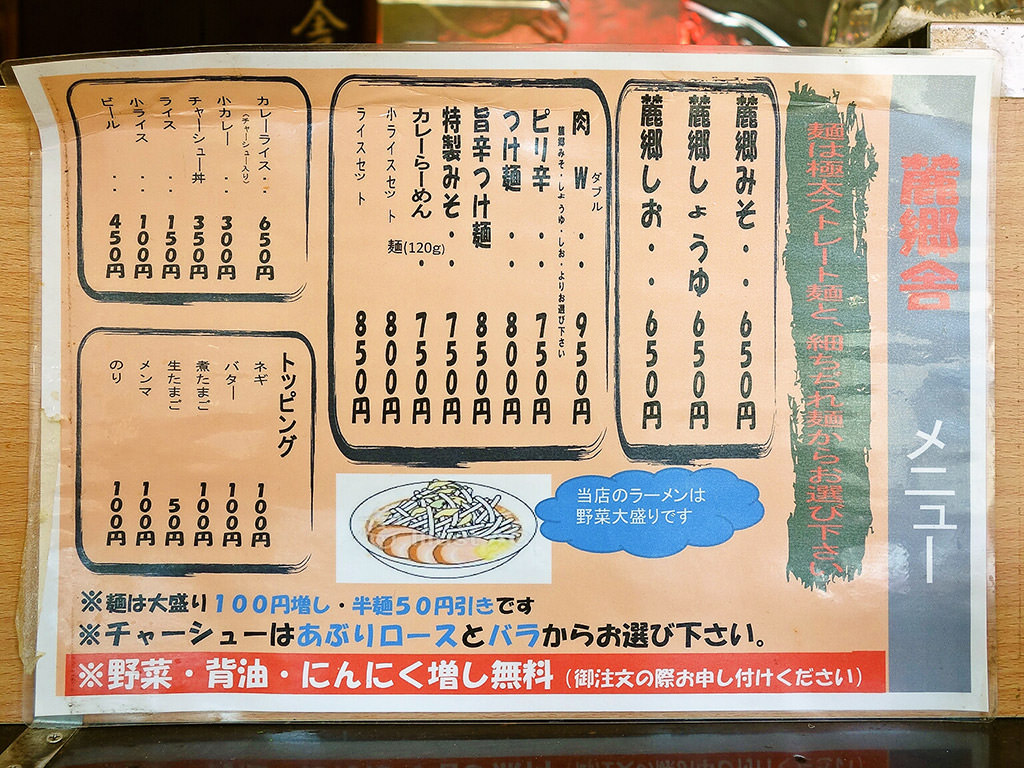 麓郷舎
メニュー
麺は極太ストレート麺と、細ちぢれ麺からお選び下さい
麓郷みそ・・650円
麓郷しょうゆ 650円
麓郷しお・・650円
肉Wダブル・・950円
麓郷みそ・しょうゆ・しお・よりお選び下さい
ピリ辛・・750円
つけ麺・・800円
旨辛つけ麺 850円
特製みそ・・750円
カレーらーめん・750円
麺(120g)
小ライスセット 800円
ライスセット 850円
カレーライス・・650円
(チャーシュー入り)
小カレー 300円
チャーシュー丼 350円
ライス・・150円
小ライス・・100円
ビール・・450円
トッピング
ネギ 100円
バター 100円
煮たまご 100円
生たまご 50円
メンマ 100円
のり 100円
当店のラーメンは
野菜大盛りです
※麺は大盛り100円増し・半麺50円引きです
※チャーシューはあぶりロースとバラからお選び下さい。
※野菜・背油・にんにく増し無料(御注文の際お申し付けください)
舎